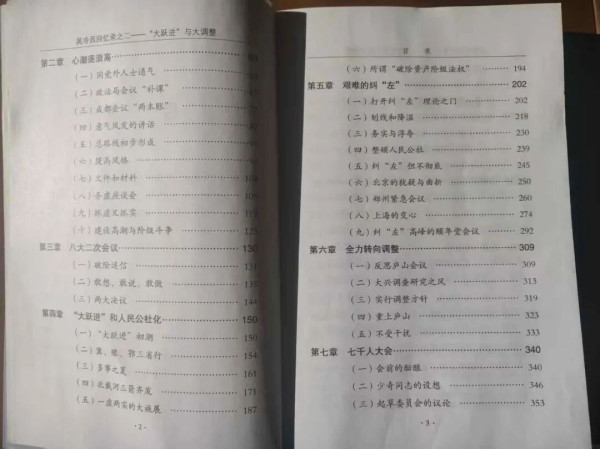 吴冷西回忆录之二——“大跃进”与大调整
第二章 心潮逐浪高
（一）同党外人士通气
（二）政法局会议“补课”
（三）成都会议“两本账”
（四）意气风发的讲话
（五）总路线初步形成
（六）提高风格
（七）文件和材料
（八）务虚座谈会
（九）抓虚又抓实
（十）建设高潮与阶级斗争 125
第三章 八大二次会议 130
（一）破除迷信 130
（二）敢想、敢说、敢做 138
（三）两大决议 144
第四章 “大跃进”和人民公社化 150
（一）“大跃进”初潮 150
（二）冀、豫、鄂三省行 154
（三）多事之夏 161
（四）北戴河三箭齐发 171
（五）一虚两实的大发展 187
· 2 ·
目 录
（六）所谓“破除资产阶级法权” 194
第五章 艰难的纠“左” 202
（一）打开纠“左”理论之门 202
（二）划线和降温 218
（三）务实与浮夸 230
（四）整顿人民公社 239
（五）纠“左”但不彻底 245
（六）北京的犹疑与曲折 250
（七）郑州紧急会议 260
（八）上海的交心 274
（九）纠“左”高峰的颐年堂会议 292
第六章 全力转向调整 309
（一）反思庐山会议 309
（二）大兴调查研究之风 313
（三）实行调整方针 319
（四）重上庐山 323
（五）不受干扰 333
第七章 七千人大会 340
（一）会前的酝酿 340
（二）少奇同志的设想 346
（三）起草委员会的议论 353
· 3 ·